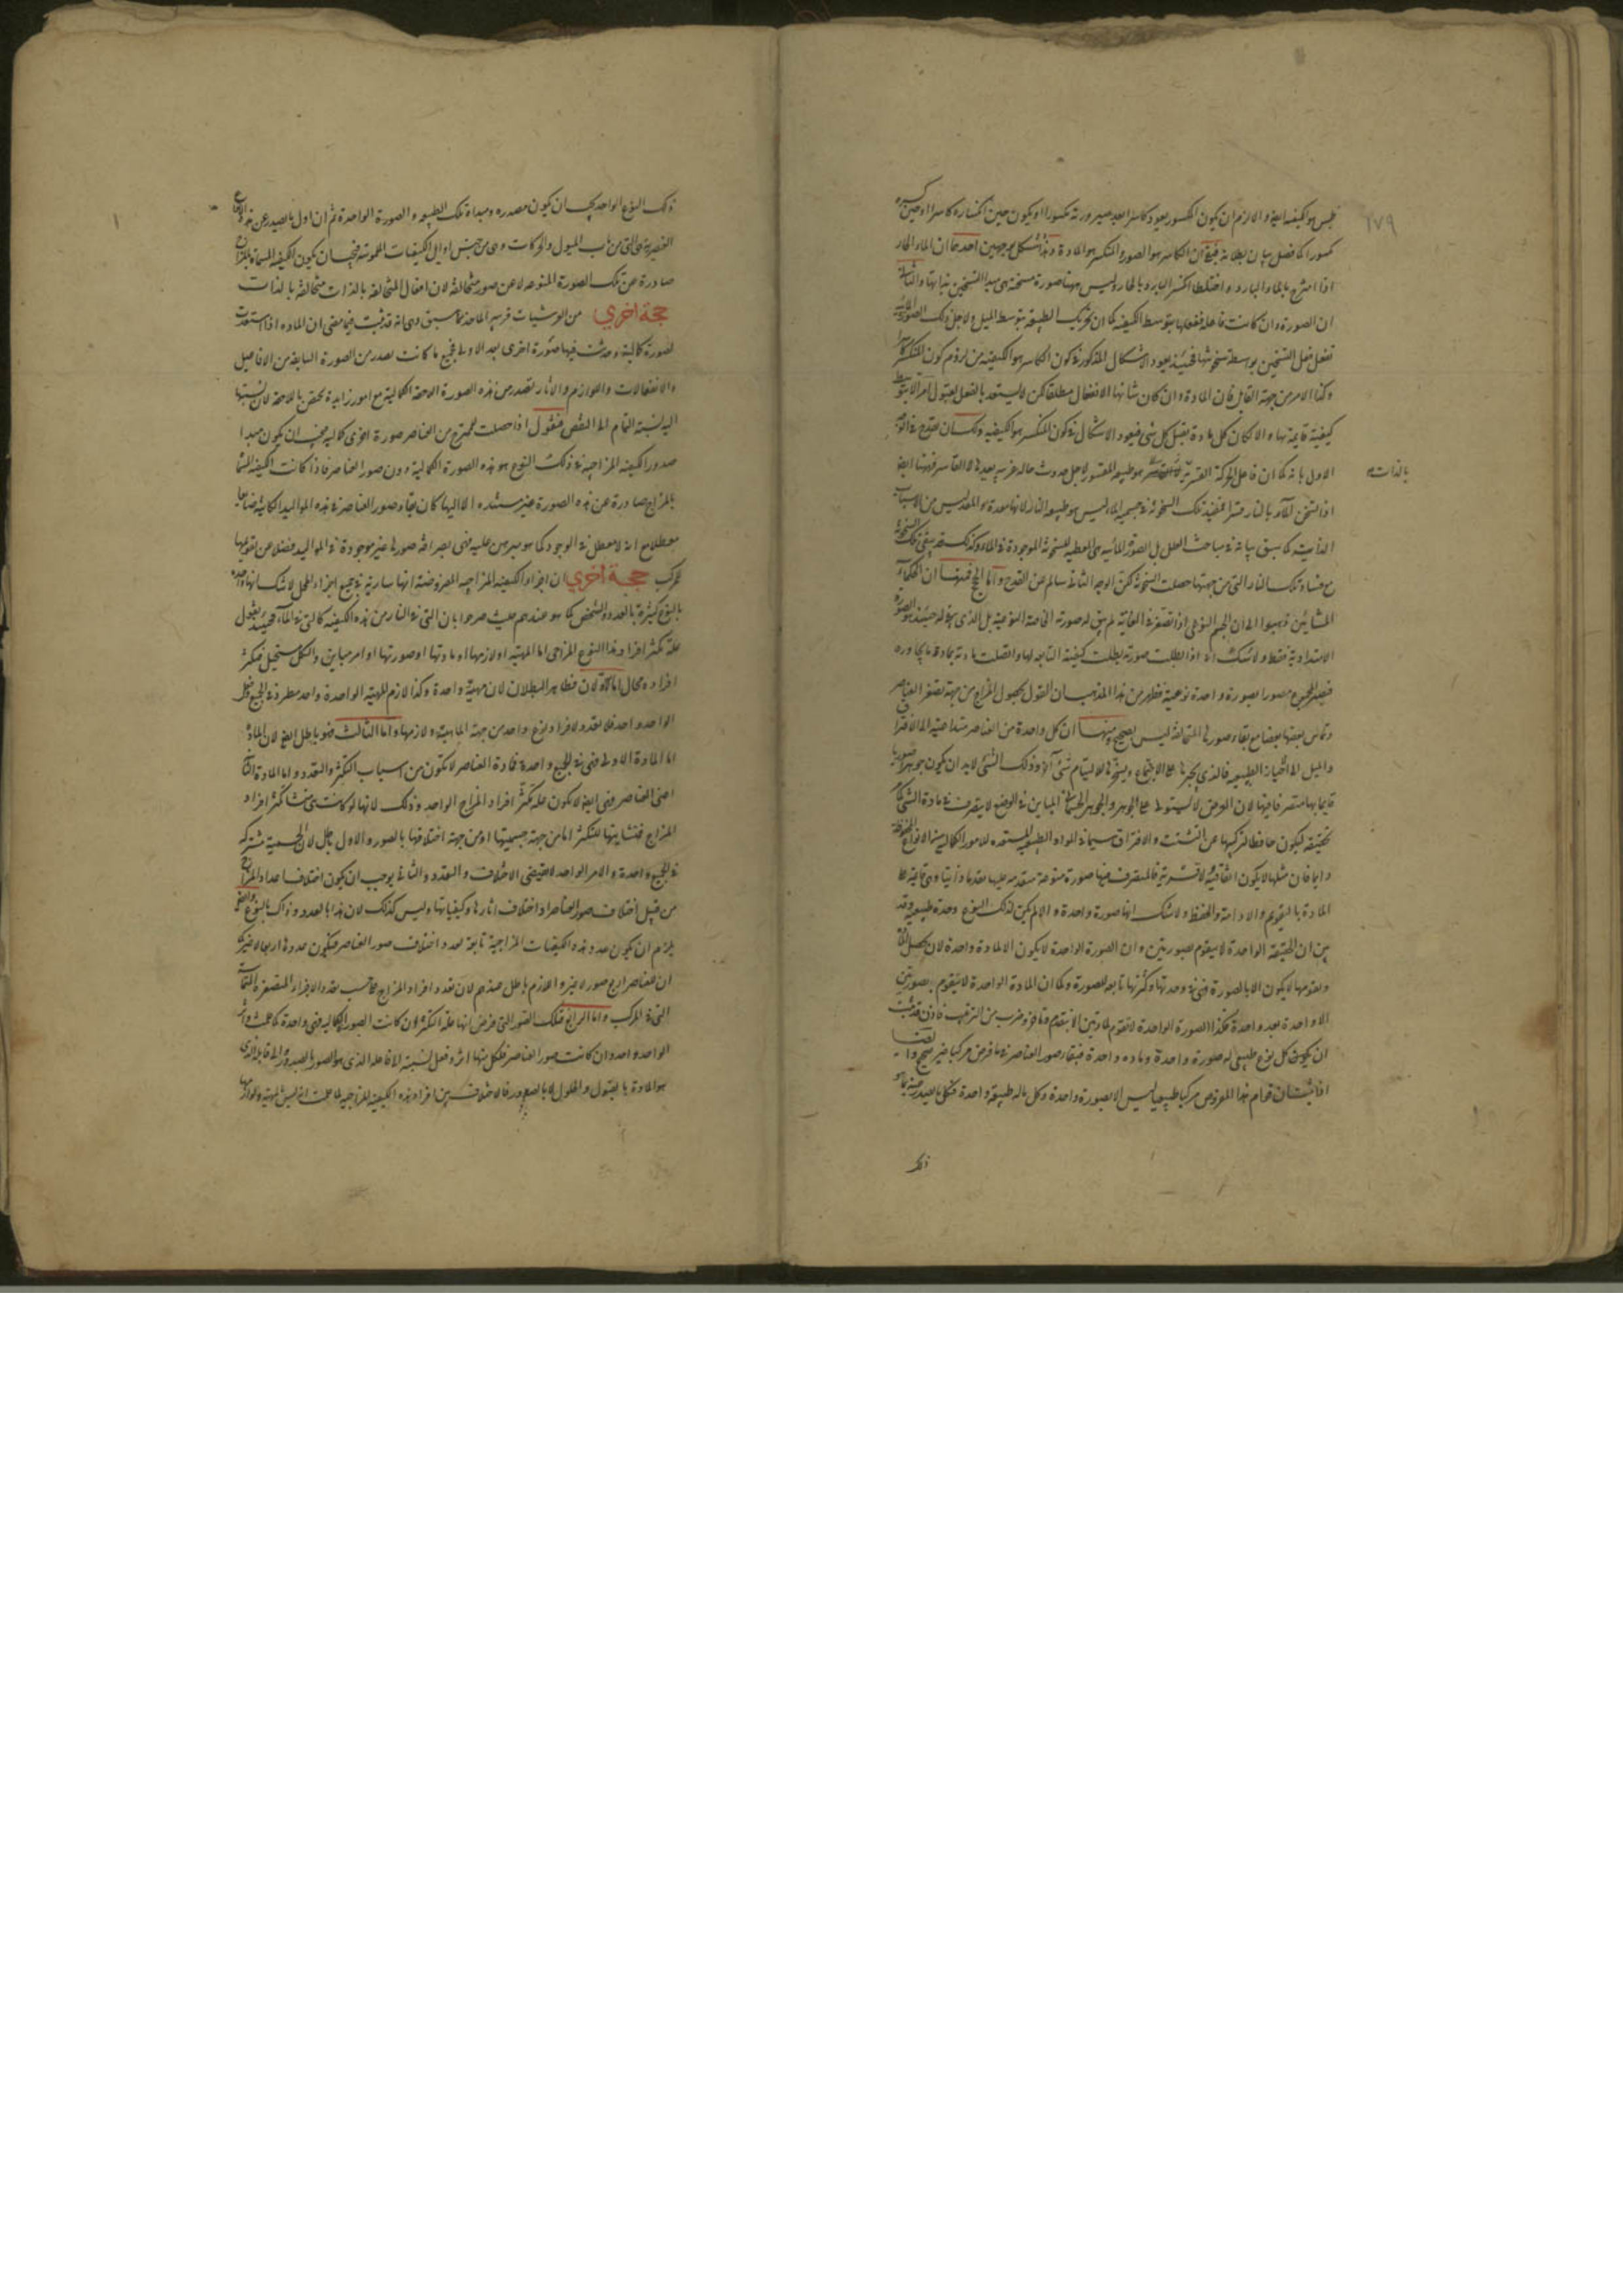 ١٧٩
ليس هو الكيفية ايضا والا لزم ان يكون المكسور يعود كاسرا بعد صيرورته مكسورا او يكون حين انكساره كاسرا وحين كسره
مكسورا كما فصل بيان بطلانه فبقى ان الكاسر هو الصورة والمنكسر هو المادة وهذا مشكل بوجهين احدهما ان الماء الحار
اذا امتزج بالماء البارد واختلطا انكسر البارد بالحار وليس هيهنا صورة مسخنة هى مبدا التسخين بذاتها والثانى
ان الصورة وان كانت فاعلة ففعلها بتوسط الكيفية كما ان تحريك الطبيعة بتوسط الميل ولاجل ذلك الصورة المائية
تفعل فعل التسخين بواسطة سخونتها فحينئذ يعود الاشكال المذكور فى كون الكاسر هو الكيفية من لزوم كون المنكسر كاسرا
وكذا الامر من جهة القابل فان المادة وان كان شانها الانفعال مطلقا لكن لا يستعد بالفعل لقبول امر الا بتوسط
كيفية قايمة بها والا لكان كل مادة يقبل كل شى فيعود الاشكال فى كون المنكسر هو الكيفية ولك ان تقدح فى الوجه
الاول بانه كما ان فاعل الحركة القسرية هو طبيعة المقسور لاجل حدوث حالة غريبة يعدها لا القاسر فهيهنا ايضا
بالذات
اذا تسخن الماء بالنار فالمفيد تلك السخونة فى جسمية الماء ليس هو طبيعة النار لانها معدة والمعد ليس من الاسباب
الذاتية كما سبق بيانه فى مباحث العلل بل الصورة المائية هى المعطية للسخونة الموجودة فى الماء وكذلك قد يبقى تلك السخونة
مع فساد تلك النار التى من جهتها حصلت السخونة لكن الوجه الثانى سالم عن القدح واما الحجج فمنها ان الحكماء
المشائين ذهبوا الى ان الجسم النوعى اذا تصغر فى الغاية لم يبق له صورته الخاصة النوعية بل الذى بقى له حينئذ هو الصورة
الامتدادية فقط ولا شك انه اذا بطلت صورته بطلت كيفيته التابعة لها واتصلت مادته بمادة ما يجاوره
فيصير المجموع مصورا بصورة واحدة نوعية فظهر من هذا المذهب ان القول بحصول المزاج من جهة تصغر العناصر
وتماس بعضها بعضا مع بقاء صورها المتخالفة ليس بصحيح ومنها ان كل واحدة من العناصر متداعية الى الافتراق
والميل الى احيازه الطبيعية فالذى يجبرها على الاجتماع ويسخرها للالتيام شئ آخر وذلك الشئ لا بد ان يكون جوهرا صوريا
قايما بها متصرفا فيها لان العرض لا يستولى على الجوهر والجوهر الجسمانى المباين فى الوضع لا يتصرف فى مادة الشئ كما
تحقيقه ليكون حافظا لتركيبها عن التشتت والافتراق سيما فى المواد الطبيعية المستعدة للامور الكمالية الانواع المحفوظة
دايما فان مثلها لا يكون اتفاقية ولا قسرية فالمتصرف فيها صورة منوعة متقدمة عليها تقدما ذاتيا وهى قائمة على
المادة بالتقويم والادامة والحفظ ولا شك انها صورة واحدة والا لم يكن لذلك النوع وحدة طبيعية وقد
بين ان الحقيقة الواحدة لا يتقوم بصورتين وان الصورة الواحدة لا يكون الا لمادة واحدة لان تحصل المادة
وتقومها لا يكون الا بالصورة فهى فى وحدتها وكثرتها تابعة للصورة وكما ان المادة الواحدة لا يتقوم بصورتين
الا واحدة بعد واحدة فكذا الصورة الواحدة لا تقوم لمادتين الا بتقدم وتاخر وضرب من الترتيب فاذن قد ثبت
ان يكون كل نوع طبيعى له صورة واحدة ومادة واحدة فبقاء صور العناصر فى ما فرض مركبا غير صحيح وايضا
اذا ثبت ان قوام هذا المفروض مركبا طبيعيا ليس الا بصورة واحدة وكل ما له طبيعة واحدة فكل ما يصدر عنه بما هو
ذلك
ذلك النوع الواحد يجب ان يكون مصدره ومبداه تلك الطبيعة والصورة الواحدة ثم ان اول ما يصدر عن هذه الانواع
العنصرية هى التى من باب الميول والحركات وهى من جنس اوايل الكيفيات الملموسة فيجب ان يكون الكيفية المسماة بالمزاج
صادرة عن تلك الصورة المنوعة لا عن صور متخالفة لان افعال المتخالفة بالذات متخالفة بالذات
حجة اخرى من العرشيات قريبة الماخذ مما سبق وهى انه قد ثبت فيما مضى ان المادة اذا استعدت
لصورة كمالية وحدثت فيها صورة اخرى بعد الاولى فجميع ما كانت يصدر من الصورة السابقة من الافاعيل
والانفعالات واللوازم والاثار يصدر من هذه الصورة اللاحقة الكمالية مع امور زايدة يختص باللاحقة لان نسبتها
اليه نسبة التمام الى النقص فنقول اذا حصلت للممتزج من العناصر صورة اخرى كمالية فيجب ان يكون مبدا
صدور الكيفية المزاجية فى ذلك النوع هو هذه الصورة الكمالية دون صور العناصر فاذا كانت الكيفية المسماة
بالمزاج صادرة عن هذه الصورة غير مستندة الا اليها كان بقاء صور العناصر فى هذه المواليد الكائنة ضائعا
معطلا مع انه لا معطل فى الوجود كما هو مبرهن عليه فهى بصرافة صورها غير موجودة فى المواليد فضلا عن تقويمها
للمركب حجة اخرى ان اجزاء الكيفية المزاجية المعروضة انها سارية فى جميع اجزاء المحل لا شك انها واحدة
بالنوع كثيرة بالعدد والشخص كما هو عندهم حيث صرحوا بان التى فى النار من هذه الكيفية كالتى فى الماء فحينئذ نقول
علة تكثر افراد هذا النوع المزاجى اما المهية او لازمها او مادتها او صورتها او امر مباين والكل مستحيل فتكثر
افراده محال اما الاولان فظاهر البطلان لان مهية واحدة وكذا لازم المهية الواحدة واحد مطرد فى الجميع فعل
الواحد واحد فلا تعدد لافراد نوع واحد من جهة الماهية ولازمها واما الثالث فهو باطل ايضا لان المادة
اما المادة الاولى فهى فى الجميع واحدة فمادة العناصر لا تكون من اسباب التكثر والتعدد واما المادة الثانية
اعنى العناصر فهى ايضا لا تكون علة تكثر افراد المزاج الواحد وذلك لانها لو كانت هى منشا تكثر افراد
المزاج فمنشايتها للتكثر اما من جهة جسميتها او من جهة اختلافها بالصور والاول باطل لان الجسمية مشتركة
فى الجميع واحدة والامر الواحد لا يقتضى الاختلاف والتعدد والثانى يوجب ان يكون اختلاف اعداد المزاج
من قبل اختلاف صور العناصر او اختلاف اثارها وكيفياتها وليس كذلك لان هذا بالعدد وذاك بالنوع وايضا
يلزم ان يكون عدد هذه الكيفيات المزاجية تابعة لعدد اختلاف صور العناصر فيكون عددها اربعا لا غير كما
ان للعناصر اربع صور لا غير واللازم باطل عندهم لان تعدد افراد المزاج يحسب تعدد الاجزاء المتصغرة المتماسة
التى فى المركب واما الرابع فتلك الصور التى فرض انها علة التكثر ان كانت الصور الكمالية فهى واحدة كما علمت واثر
الواحد واحد وان كانت صور العناصر فلكل منها اثر وفعل نسبته الى فاعله الذى هو الصور بالصدور والى قابله الذى
هو المادة بالقبول والحلول لا بالصدور فالاختلاف بين افراد هذه الكيفية المزاجية لما علمت انه ليس للمهية ولوازمها